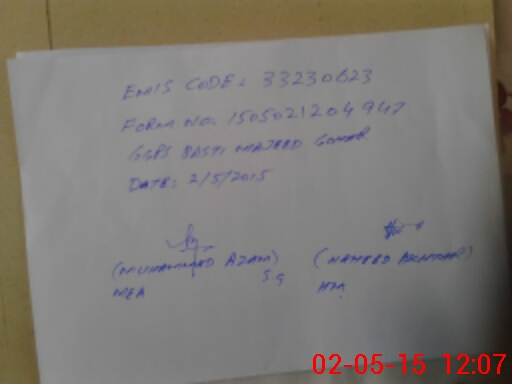 EMIS CODE: 33230623
FORM NO: 1505021204947
GGPS BASTI MAJEED GOMAR
DATE: 2/5/2015
(MUHAMMAD AZAM) (NAHEED AKHTAR)
S.G
MEA HM
02-05-15 12:07